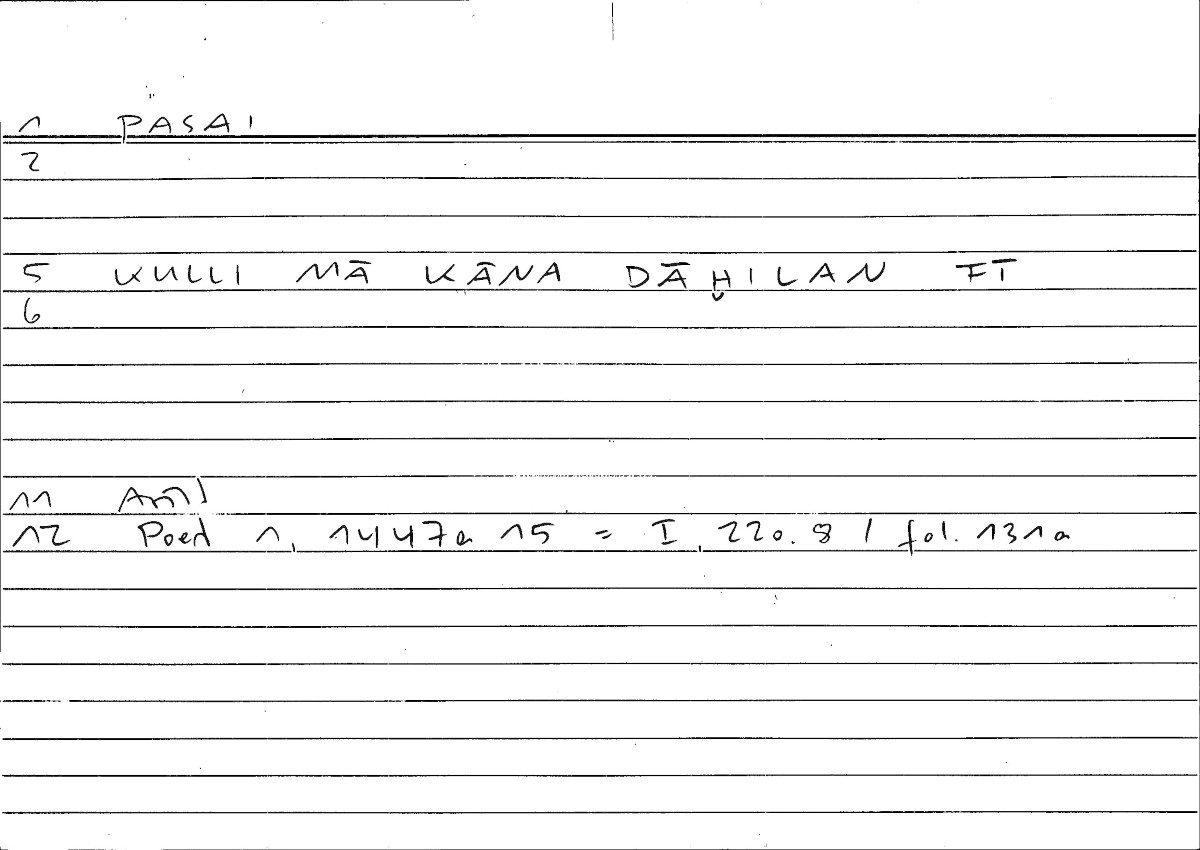 1 PASAI
2
5 KULLI MĀ KĀNA DĀḪILAN FĪ
6
11
12 Poed 1, 1447a 15 = I, 220.8 / fol. 131a